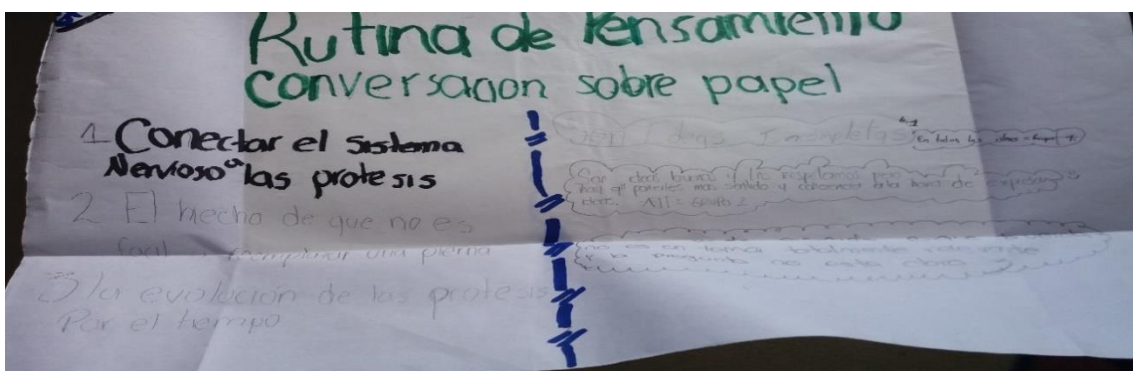 Rutina de Pensamiento
conversacion sobre papel
1 Conectar el Sistema
Nervioso a las protesis
2. El hecho de que no es
facil reemplazar una pierna
3 la evolución de las protesis
Por el tiempo
Son Ideas Incompletas
En todas las
Son ideas buenas y las respetamos pero
hay q' ponerles mas sentido y coherencia a la hora de expresar
ATT: Grupo 2
no es un tema totalmente relevante
y la pregunta no esta clara